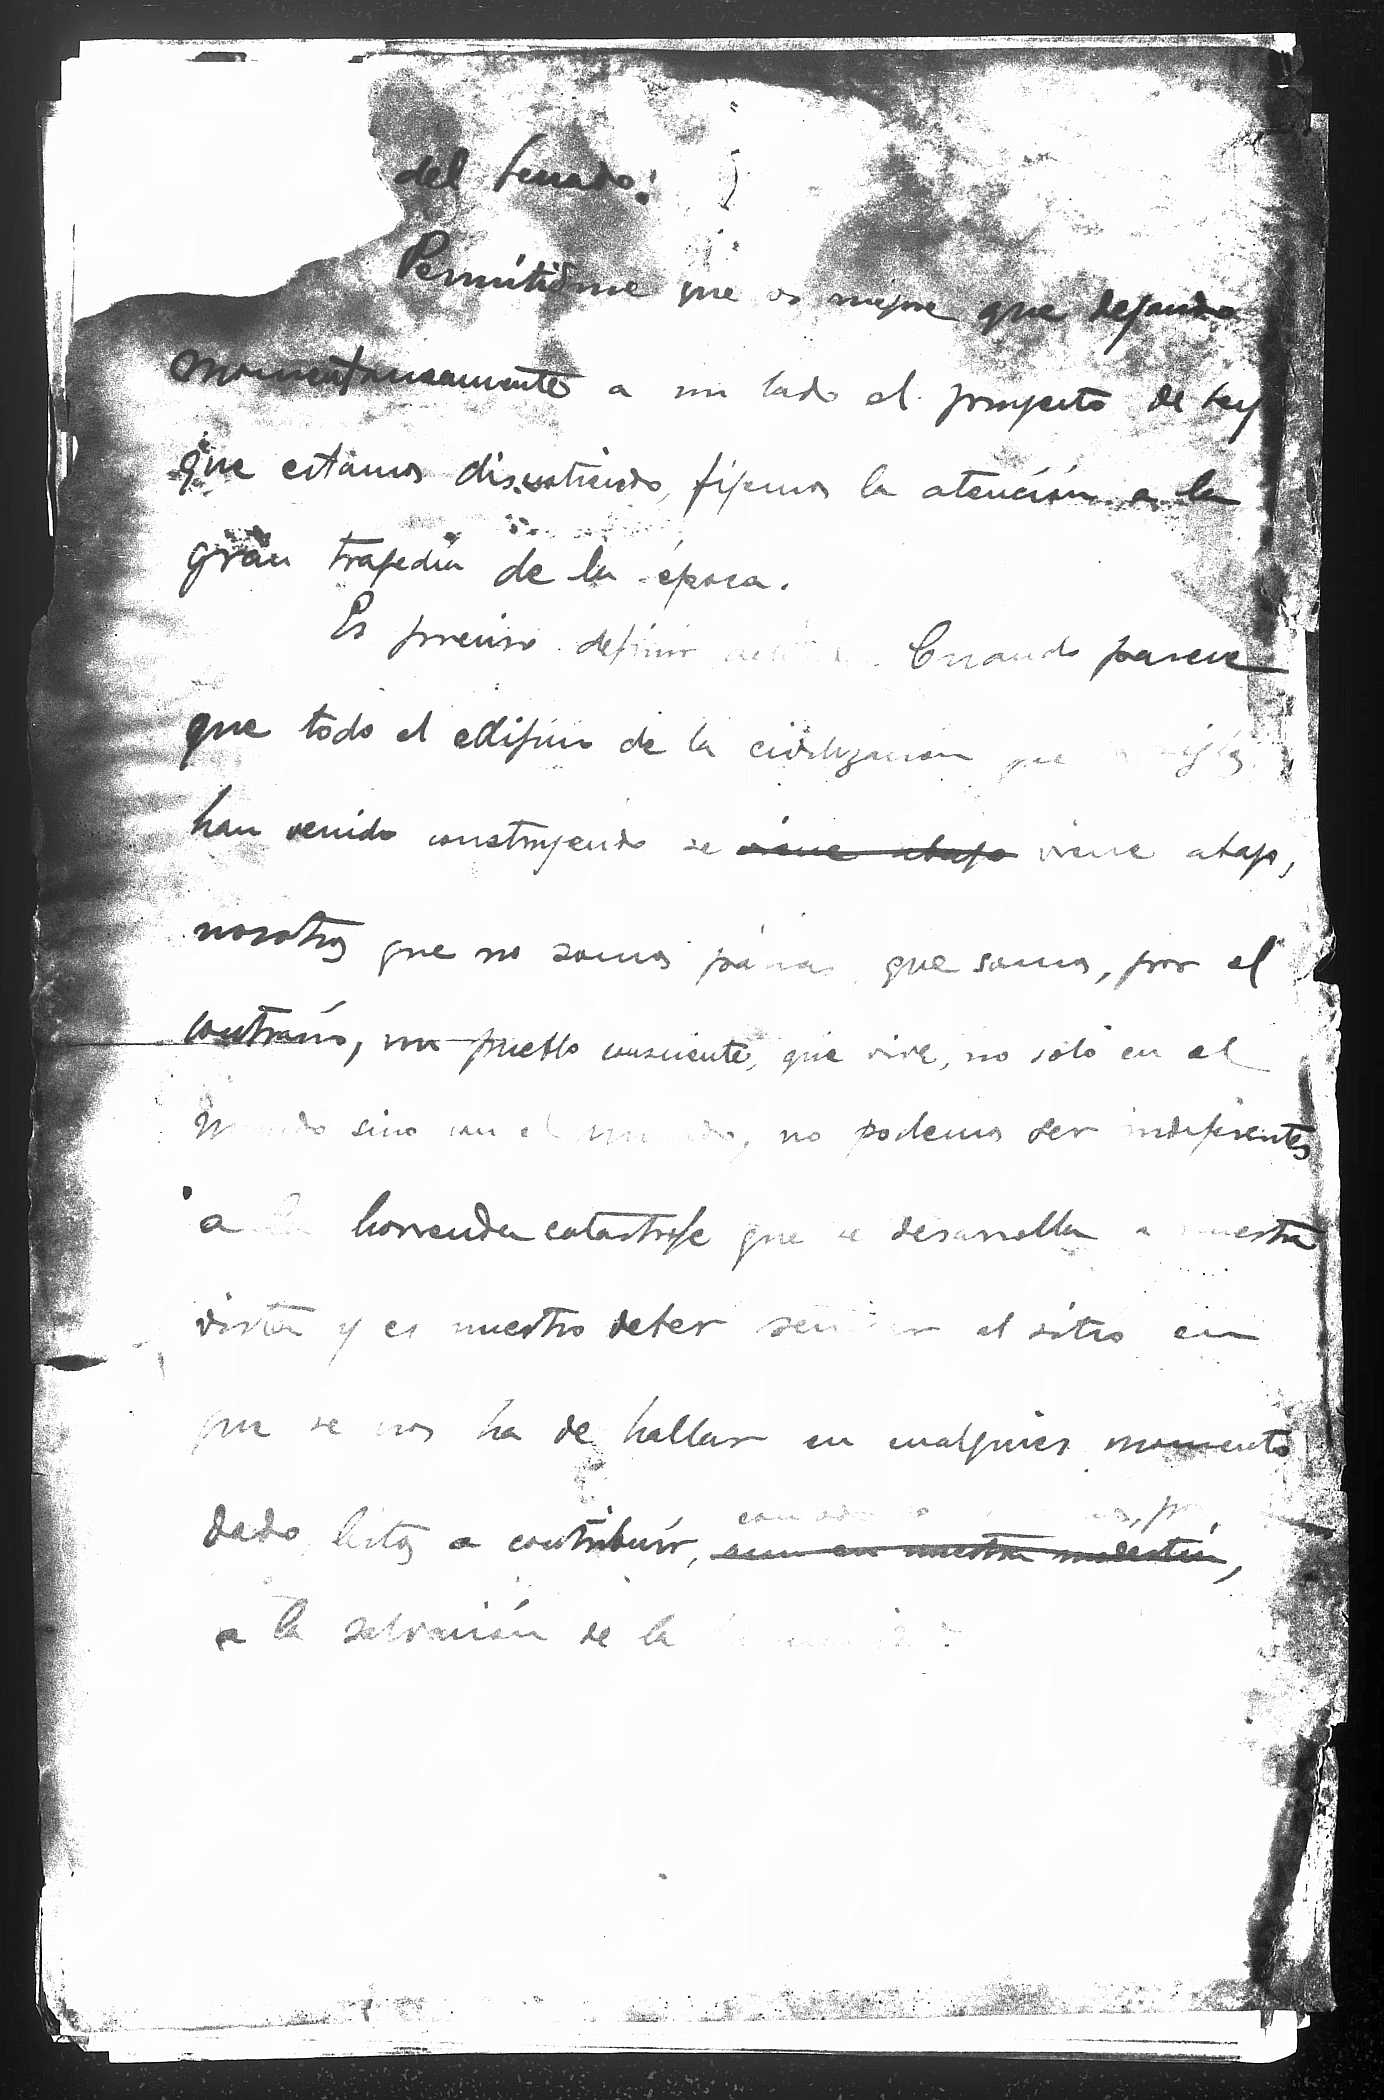 del Senado:
Permitidme que os ruegue que dejando
momentaneamente a un lado el proyecto de Ley
que estamos discutiendo, fijemos la atención a la
gran tragedia de la época.
Es preciso definir Cuando parece
que todo el edificio de la civilizacion que siglos
han venido construyendo se viene abajo viene abajo,
nosotros que no somos parias que somos, por el
contrario, un pueblo consciente, que vive, no solo en el
mundo sino con el mundo, no podemos ser indiferentes
a la horrenda catastrofe que se desarrolla a nuestra
vista y es nuestro deber señalar el sitio en
que se nos ha de hallar en cualquier momento
dado listos a contribuir, aun en nuestra modestia,
a la salvación de la